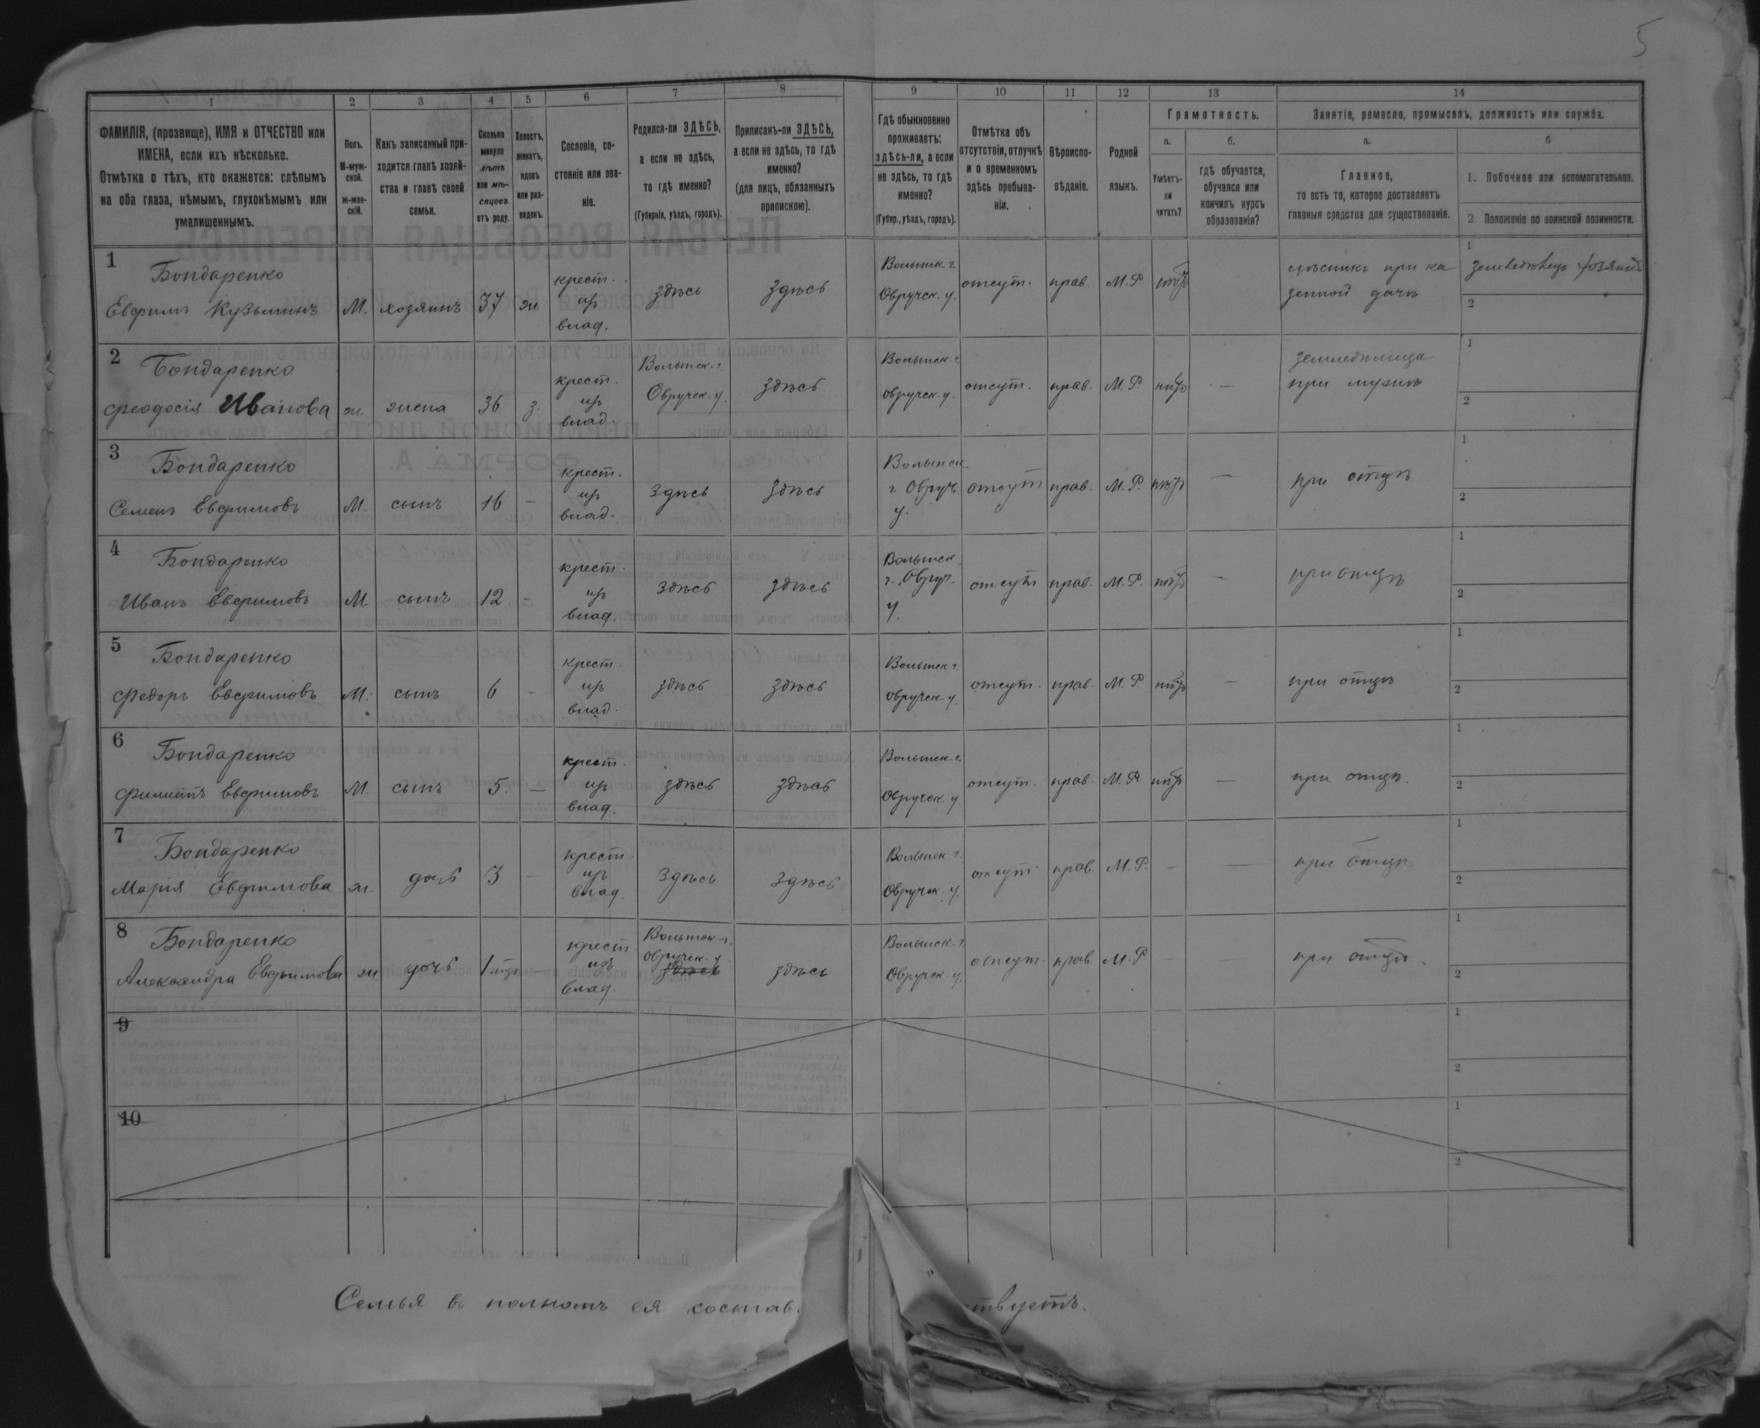 5
1 2 3 4 5 6 7 8 9 10 11 12 13 14
ФАМИЛІЯ, (прозвище), ИМЯ и ОТЧЕСТВО или
ИМЕНА, если ихъ нѣсколько.
Отмѣтка о тѣхъ, кто окажется: слѣпымъ
на оба глаза, нѣмымъ, глухонѣмымъ или
умалишеннымъ.
Полъ.
М-муж-
ской.
ж-жен-
скій.
Какъ записанный при-
ходится главѣ хозяй-
ства и главѣ своей
семьи.
Сколько
минуло
лѣтъ
или мѣ-
сяцевъ
отъ роду.
Холостъ,
женатъ,
вдовъ
или раз-
веденъ.
Сословіе, со-
стояніе или зва-
ніе.
Родился-ли ЗДѢСЬ,
а если не здѣсь,
то гдѣ именно?
(Губернія, уѣздъ, городъ).
Приписанъ-ли ЗДѢСЬ,
а если не здѣсь, то гдѣ
именно?
(для лицъ, обязанныхъ
припискою).
Гдѣ обыкновенно
проживаетъ:
здѣсь-ли, а если
не здѣсь, то гдѣ
именно?
(Губер., уѣздъ, городъ).
Отмѣтка объ
отсутствіи, отлучкѣ
и о временномъ
здѣсь пребыва-
ніи.
Вѣроиспо-
вѣданіе.
Родной
языкъ.
Грамотность.
а.
Умѣетъ-
ли
читать?
б.
гдѣ обучается,
обучался или
кончилъ курсъ
образованія?
Занятіе, ремесло, промыселъ, должность или служба.
а.
Главное,
то есть то, которое доставляетъ
главныя средства для существованія.
б
1. Побочное или вспомогательное.
2 Положеніе по воинской повинности.
1
Бондаренко
Евфимъ Кузьминъ М. хозяинъ 37 ж. крест. изъ влад. здѣсь здѣсь Волынск. г. Овручск. у. отсут. прав. М.Р. нѣтъ — лѣсникъ при ка
зенной дачѣ
1 земледѣлецъ хозяинъ
2
2
Бондаренко
Феодосія Иванова ж. жена 36 з. крест. изъ влад. Волынск. г. Овручск. у. здѣсь Волынск. г. Овручск. у. отсут. прав. М.Р. нѣтъ —
при мужѣ
1
2
3
Бондаренко
Семенъ Евфимовъ М. сынъ 16 — крест. изъ влад. здѣсь здѣсь Волынск. г. Овруч. у. отсут прав. М.Р. нѣтъ — при отцѣ
1
2
4
Бондаренко
Иванъ Евфимовъ М. сынъ 12 — крест. изъ влад. здѣсь здѣсь Волынск. г. Овруч. у. отсут прав. М.Р. нѣтъ — при отцѣ
1
2
5
Бондаренко
Федоръ Евфимовъ М. сынъ 6 — крест. изъ влад. здѣсь здѣсь Волынск г. Овручск. у. отсут. прав. М.Р нѣтъ — при отцѣ
1
2
6
Бондаренко
Филиппъ Евфимовъ М. сынъ 5 — крест. изъ влад. здѣсь здѣсь Волынск. г. Овручск. у. отсут. прав. М.Р. нѣтъ — при отцѣ.
1
2
7
Бондаренко
Марія Евфимова ж. дочь 3 — крест. изъ влад. здѣсь здѣсь Волынск г. Овручск. у. отсут прав. М.Р. — — при отцѣ
1
2
8
Бондаренко
Александра Евфимова ж. дочь 1 — крест изъ влад. Волынск. г. Овручск. у. здѣсь здѣсь Волынск. г. Овручск. у. отсут. прав. М.Р — — при отцѣ.
1
2
9
1
2
10
1
2
Семья въ полномъ ея состав. ствуетъ.